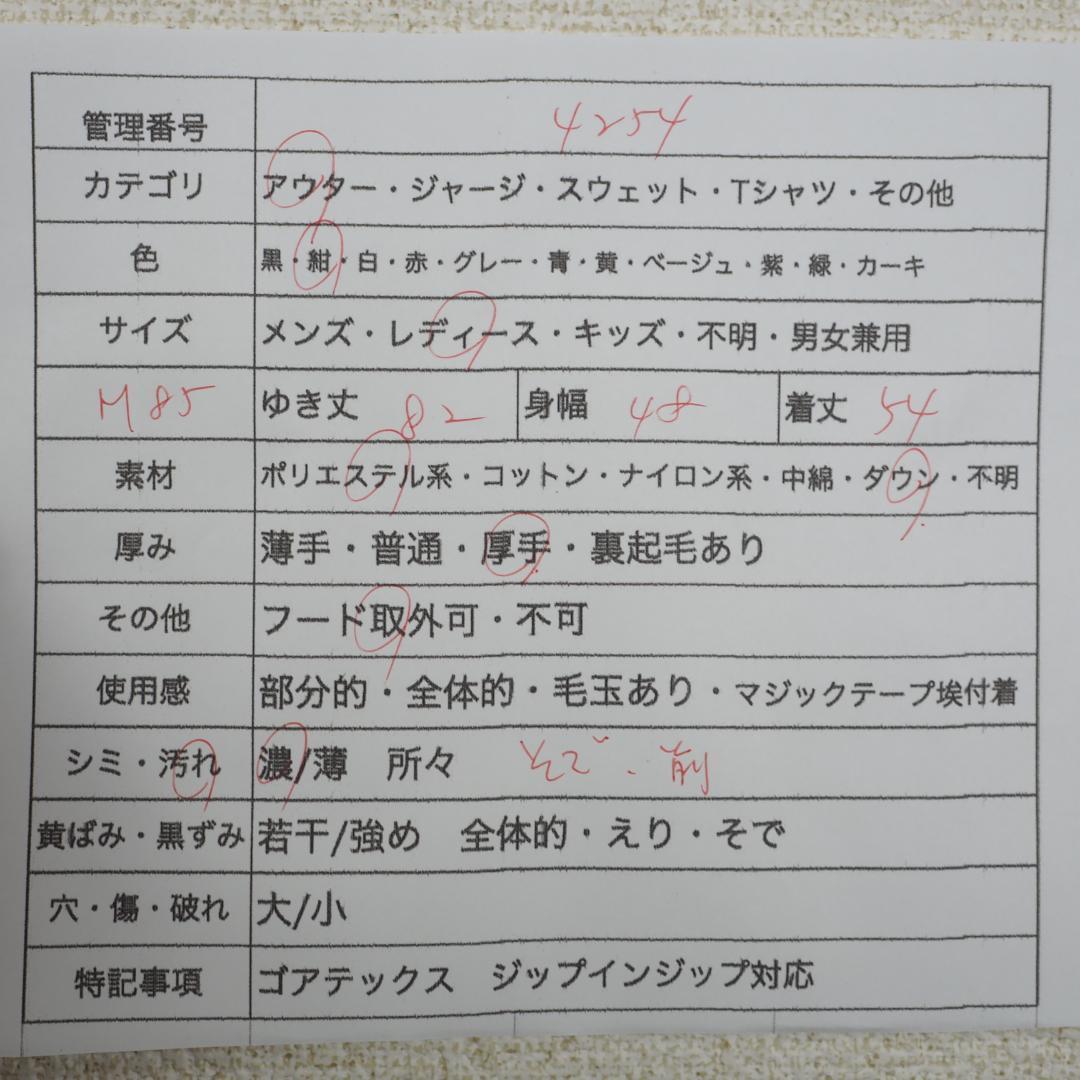 管理番号 4254
カテゴリ アウター・ジャージ・スウェット・Tシャツ・その他
色 黒・紺・白・赤・グレー・青・黄・ベージュ・紫・緑・カーキ
サイズ メンズ・レディース・キッズ・不明・男女兼用
M85 ゆき丈 82 身幅 48 着丈 54
素材 ポリエステル系・コットン・ナイロン系・中綿・ダウン・不明
厚み 薄手・普通・厚手・裏起毛あり
その他 フード取外可・不可
使用感 部分的・全体的・毛玉あり・マジックテープ埃付着
シミ・汚れ 濃/薄 所々 そで、前
黄ばみ・黒ずみ 若干/強め 全体的・えり・そで
穴・傷・破れ 大/小
特記事項 ゴアテックス ジップインジップ対応